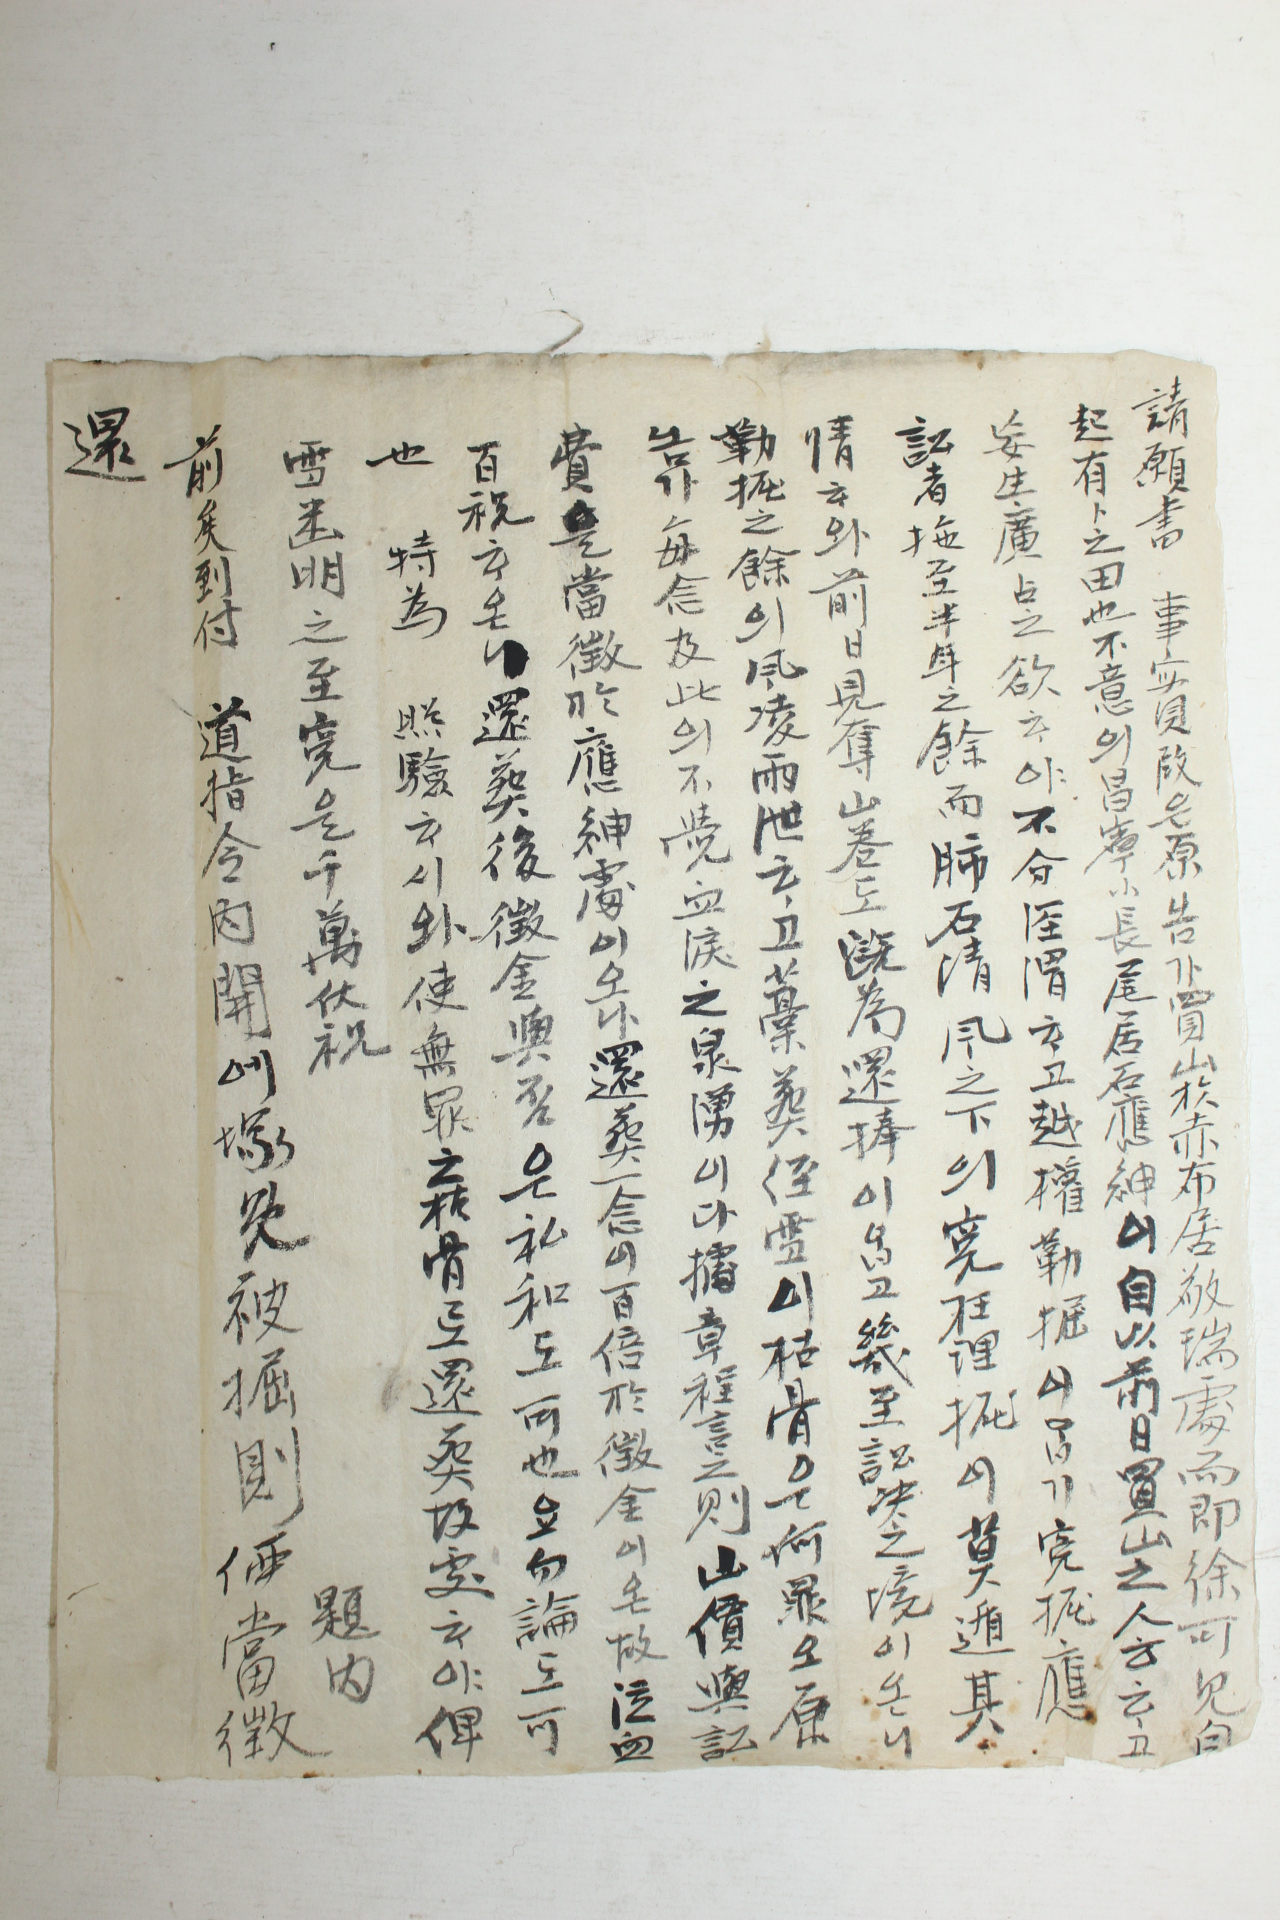 請願書 事實段은原告가買山於赤布居敬瑞處而即徐可見白
起有卜之田也不意의昌寧小長尾居石應紳이自以前日買山之人方云고
妄生廣占之欲하야不分涇渭하고越權勒掘이삼기寃掘應
訟者拖至半年之餘而肺石淸風之下의寃枉理掘이莫遁其
情하와前日見奪山卷도旣爲還捧이옵고幾至訟決之境이온니
勒掘之餘의風凌雨泄하고藁葬經雪이枯骨은何罪오原
告가每念及此의不覺血淚之泉湧이다據章程言之則山價與訟
費을當徵於應紳處이오나還葬一念이百倍於徵金이온故泣血
百祝하온니還葬後徵金與否은私和도可也요勿論도可
也 特爲 照驗하시와使無罪之枯骨도還葬故處하야俾
雪幽明之至寃을千萬伏祝
題內
前矣到付 道指令內開에塚旣被掘則価當徵
還